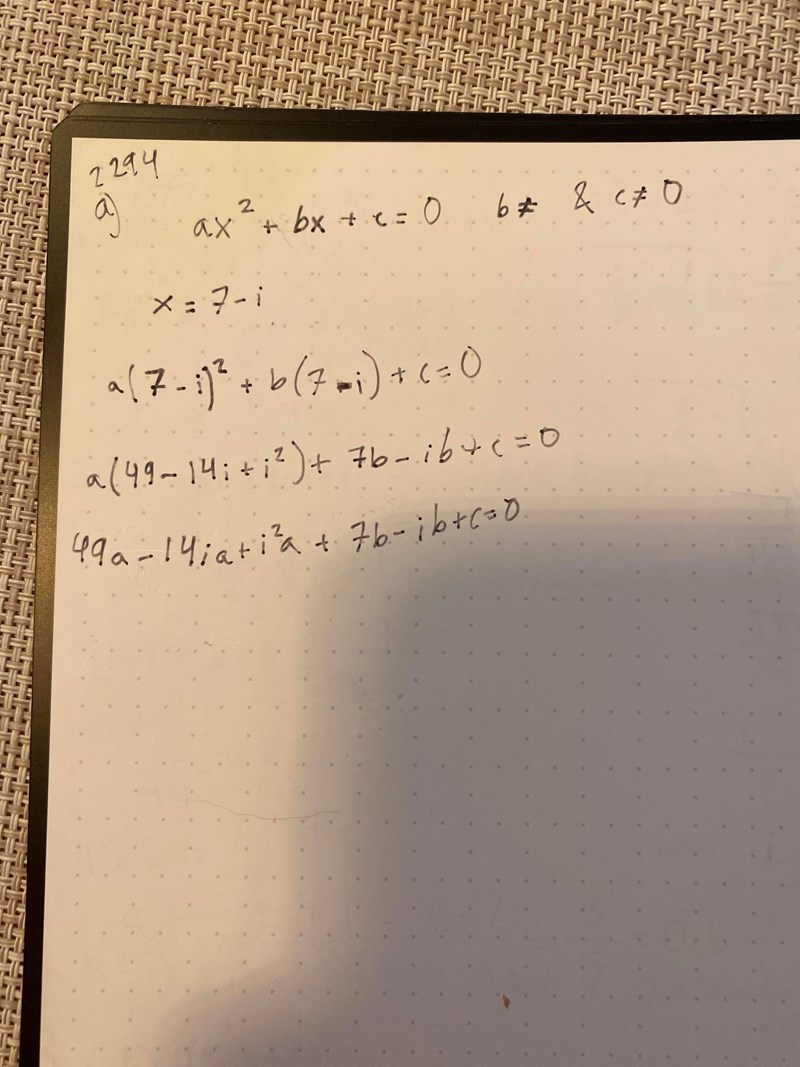 2294
a) ax² + bx + c = 0 b ≠ & c ≠ 0
x = 7 - i
a(7 - i)² + b(7 - i) + c = 0
a(49 - 14i + i²) + 7b - ib + c = 0
49a - 14ia + i²a + 7b - ib + c = 0